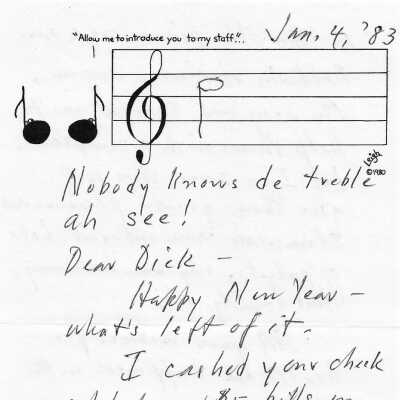 "Allow me to introduce you to my staff"...
Jan. 4, '83
Leigh
©1980
Nobody knows de treble
ah see!
Dear Dick –
Happy New Year –
what's left of it.
I cashed your check
bills